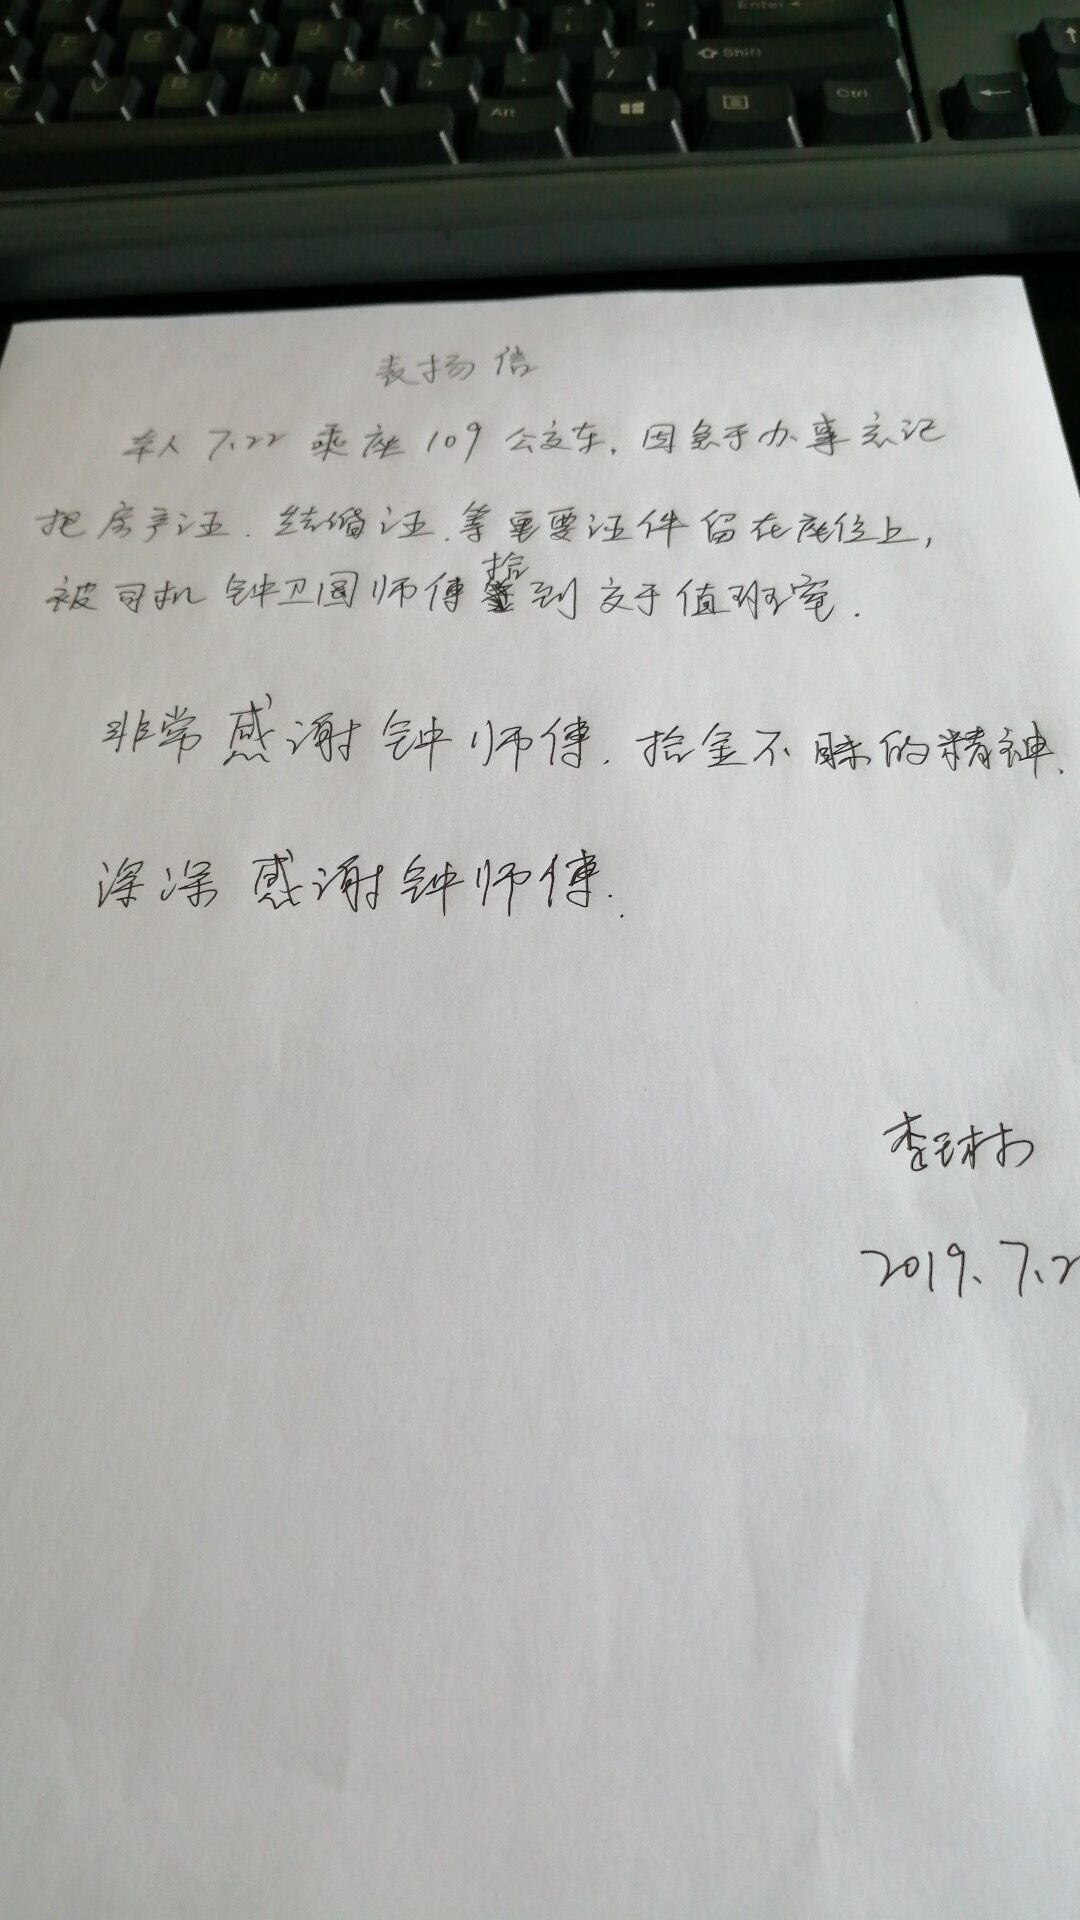 Enter
F G H J K L
Shift
C V B N M
Alt
Ctrl
表扬信
本人7.22乘座109公交车,因急于办事忘记
把房产证.结婚证.等重要证件留在座位上,
被司机钟卫国师傅拾到交于值班室.
非常感谢钟师傅.拾金不昧的精神.
深深感谢钟师傅.
2019.7.2